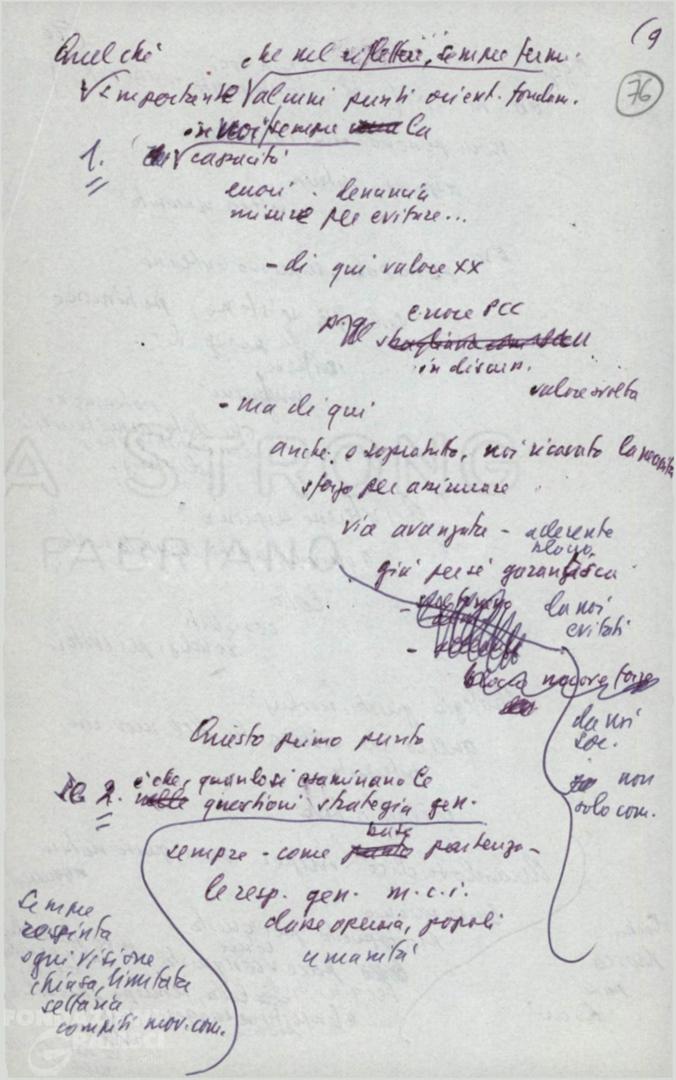 (9
76
Quel che che nel riflettere, sempre ferm.
importante alcuni punti orient. fondam.
in noi sempre la
1. capacità
errori . denuncia
misure per evitare...
- di qui valore XX
errore PCC
in discuss.
valore svolta
- ma di qui
anche, o sopratutto, noi ricavato la necessità
sforzo per assicurare
via avanzata - aderente
già per sé garantisca
da noi
evitati
nuove forze
da noi
soc.
non
solo com.
Questo primo punto
2. è che, quando si esaminano le
questioni strategia gen.
base
sempre - come partenza -
le resp. gen. m.c.i.
classe operaia, popoli
umanità
Sempre
respinta
ogni visione
chiusa, limitata
settaria
compiti mov. com.
FONDAZIONE
GRAMSCI
A STRONG
FABRIANO